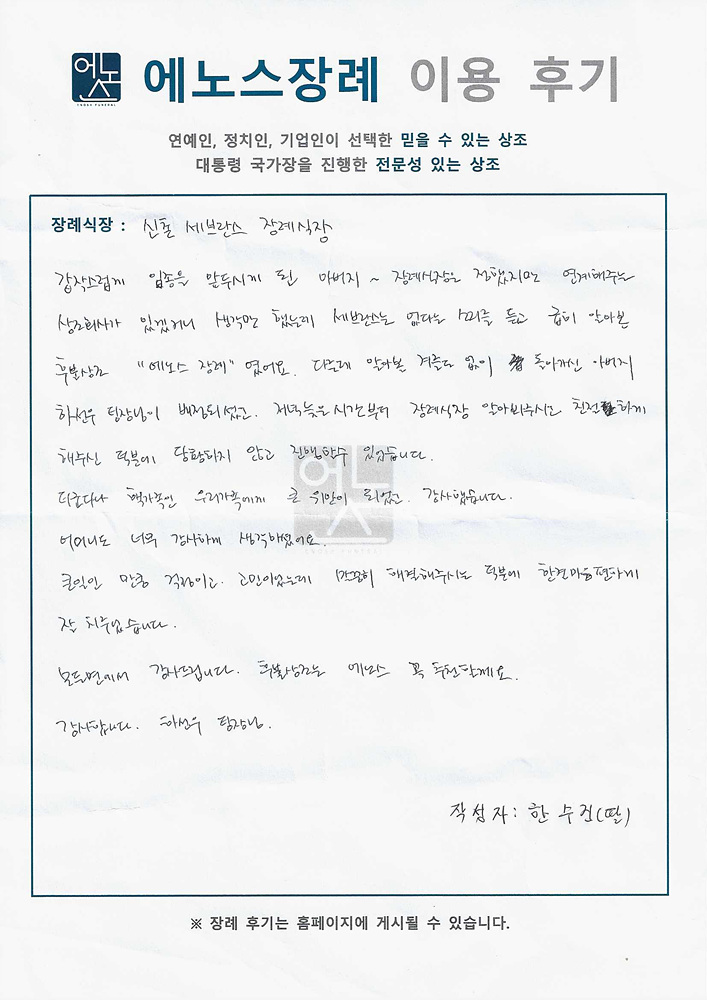 에노스
ENOSH FUNERAL
에노스장례 이용 후기
연예인, 정치인, 기업인이 선택한 믿을 수 있는 상조
대통령 국가장을 진행한 전문성 있는 상조
장례식장 : 신촌 세브란스 장례식장
갑작스럽게 임종을 앞두시게 된 아버지 ~ 장례식장은 정했지만 연계해주는
상조회사가 있겠거니 생각만 했는데 세브란스는 없다는 소리를 듣고 급히 알아본
후불상조 "에노스 장례" 였어요. 다른데 알아볼 겨를도 없이 돌아가신 아버지
하선우 팀장님이 배정되셨고. 저녁늦은시간부터 장례식장 알아봐주시고 친절하게
해주신 덕분에 당황하지 않고 진행할수 있었습니다.
더군다나 핵가족인 우리가족에게 큰 위안이 되었고. 감사했습니다.
어머니도 너무 감사하게 생각하셨어요.
큰일인 만큼 걱정이고. 고민이었는데 꼼꼼히 해결해주시는 덕분에 한결마음편하게
잘 치루었습니다.
모든면에서 감사드립니다. 후불상조는 에노스 꼭 추천할께요.
감사합니다. 하선우 팀장님.
작성자 : 한수진(딸)
에노스
ENOSH FUNERAL
※ 장례 후기는 홈페이지에 게시될 수 있습니다.